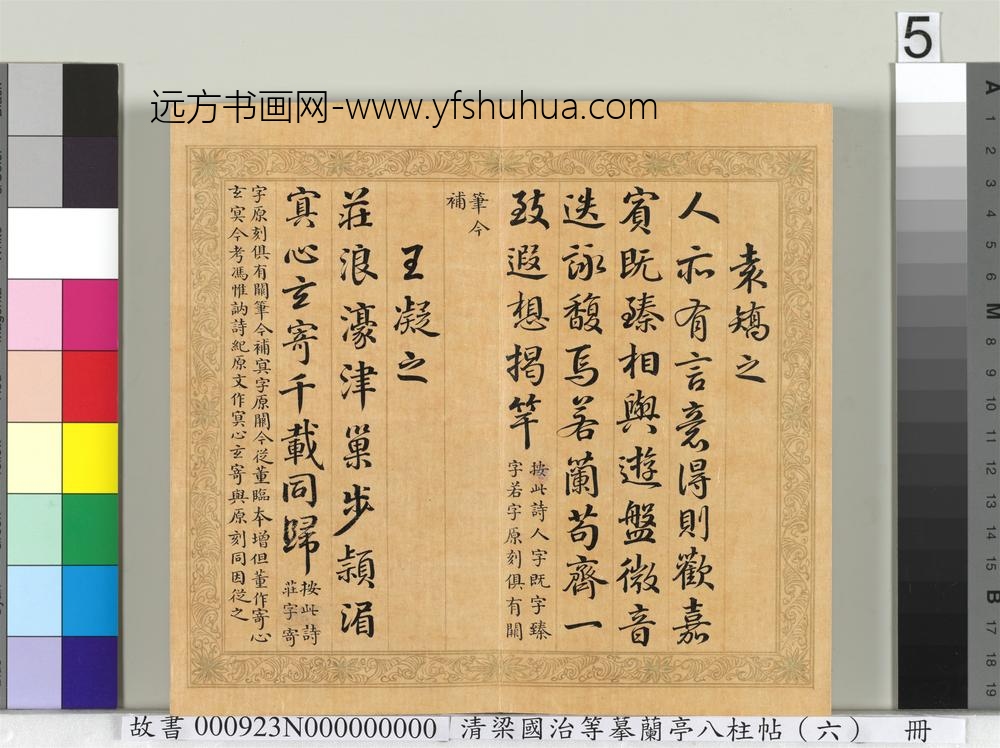 5
远方书画网-www.yfshuhua.com
袁矯之
人亦有言意得則歡嘉
賓既臻相與遊盤微音
迭詠馥焉若蘭苟齊一
致遐想揭竿
按此詩人字既字臻
字若字原刻俱有闕
筆今
補
王凝之
莊浪濠津巢步潁湄
寘心玄寄千載同歸
按此詩
莊字寄
字原刻俱有闕筆今補寘字原闕今從董臨本增但董作寄心
玄冥今考馮惟訥詩紀原文作寘心玄寄與原刻同因從之
A 1 2 3 4 5 6 M 8 9 10 11 12 13 14 15 B 17 18 19
故書 000923N000000000 清梁國治等摹蘭亭八柱帖（六） 冊